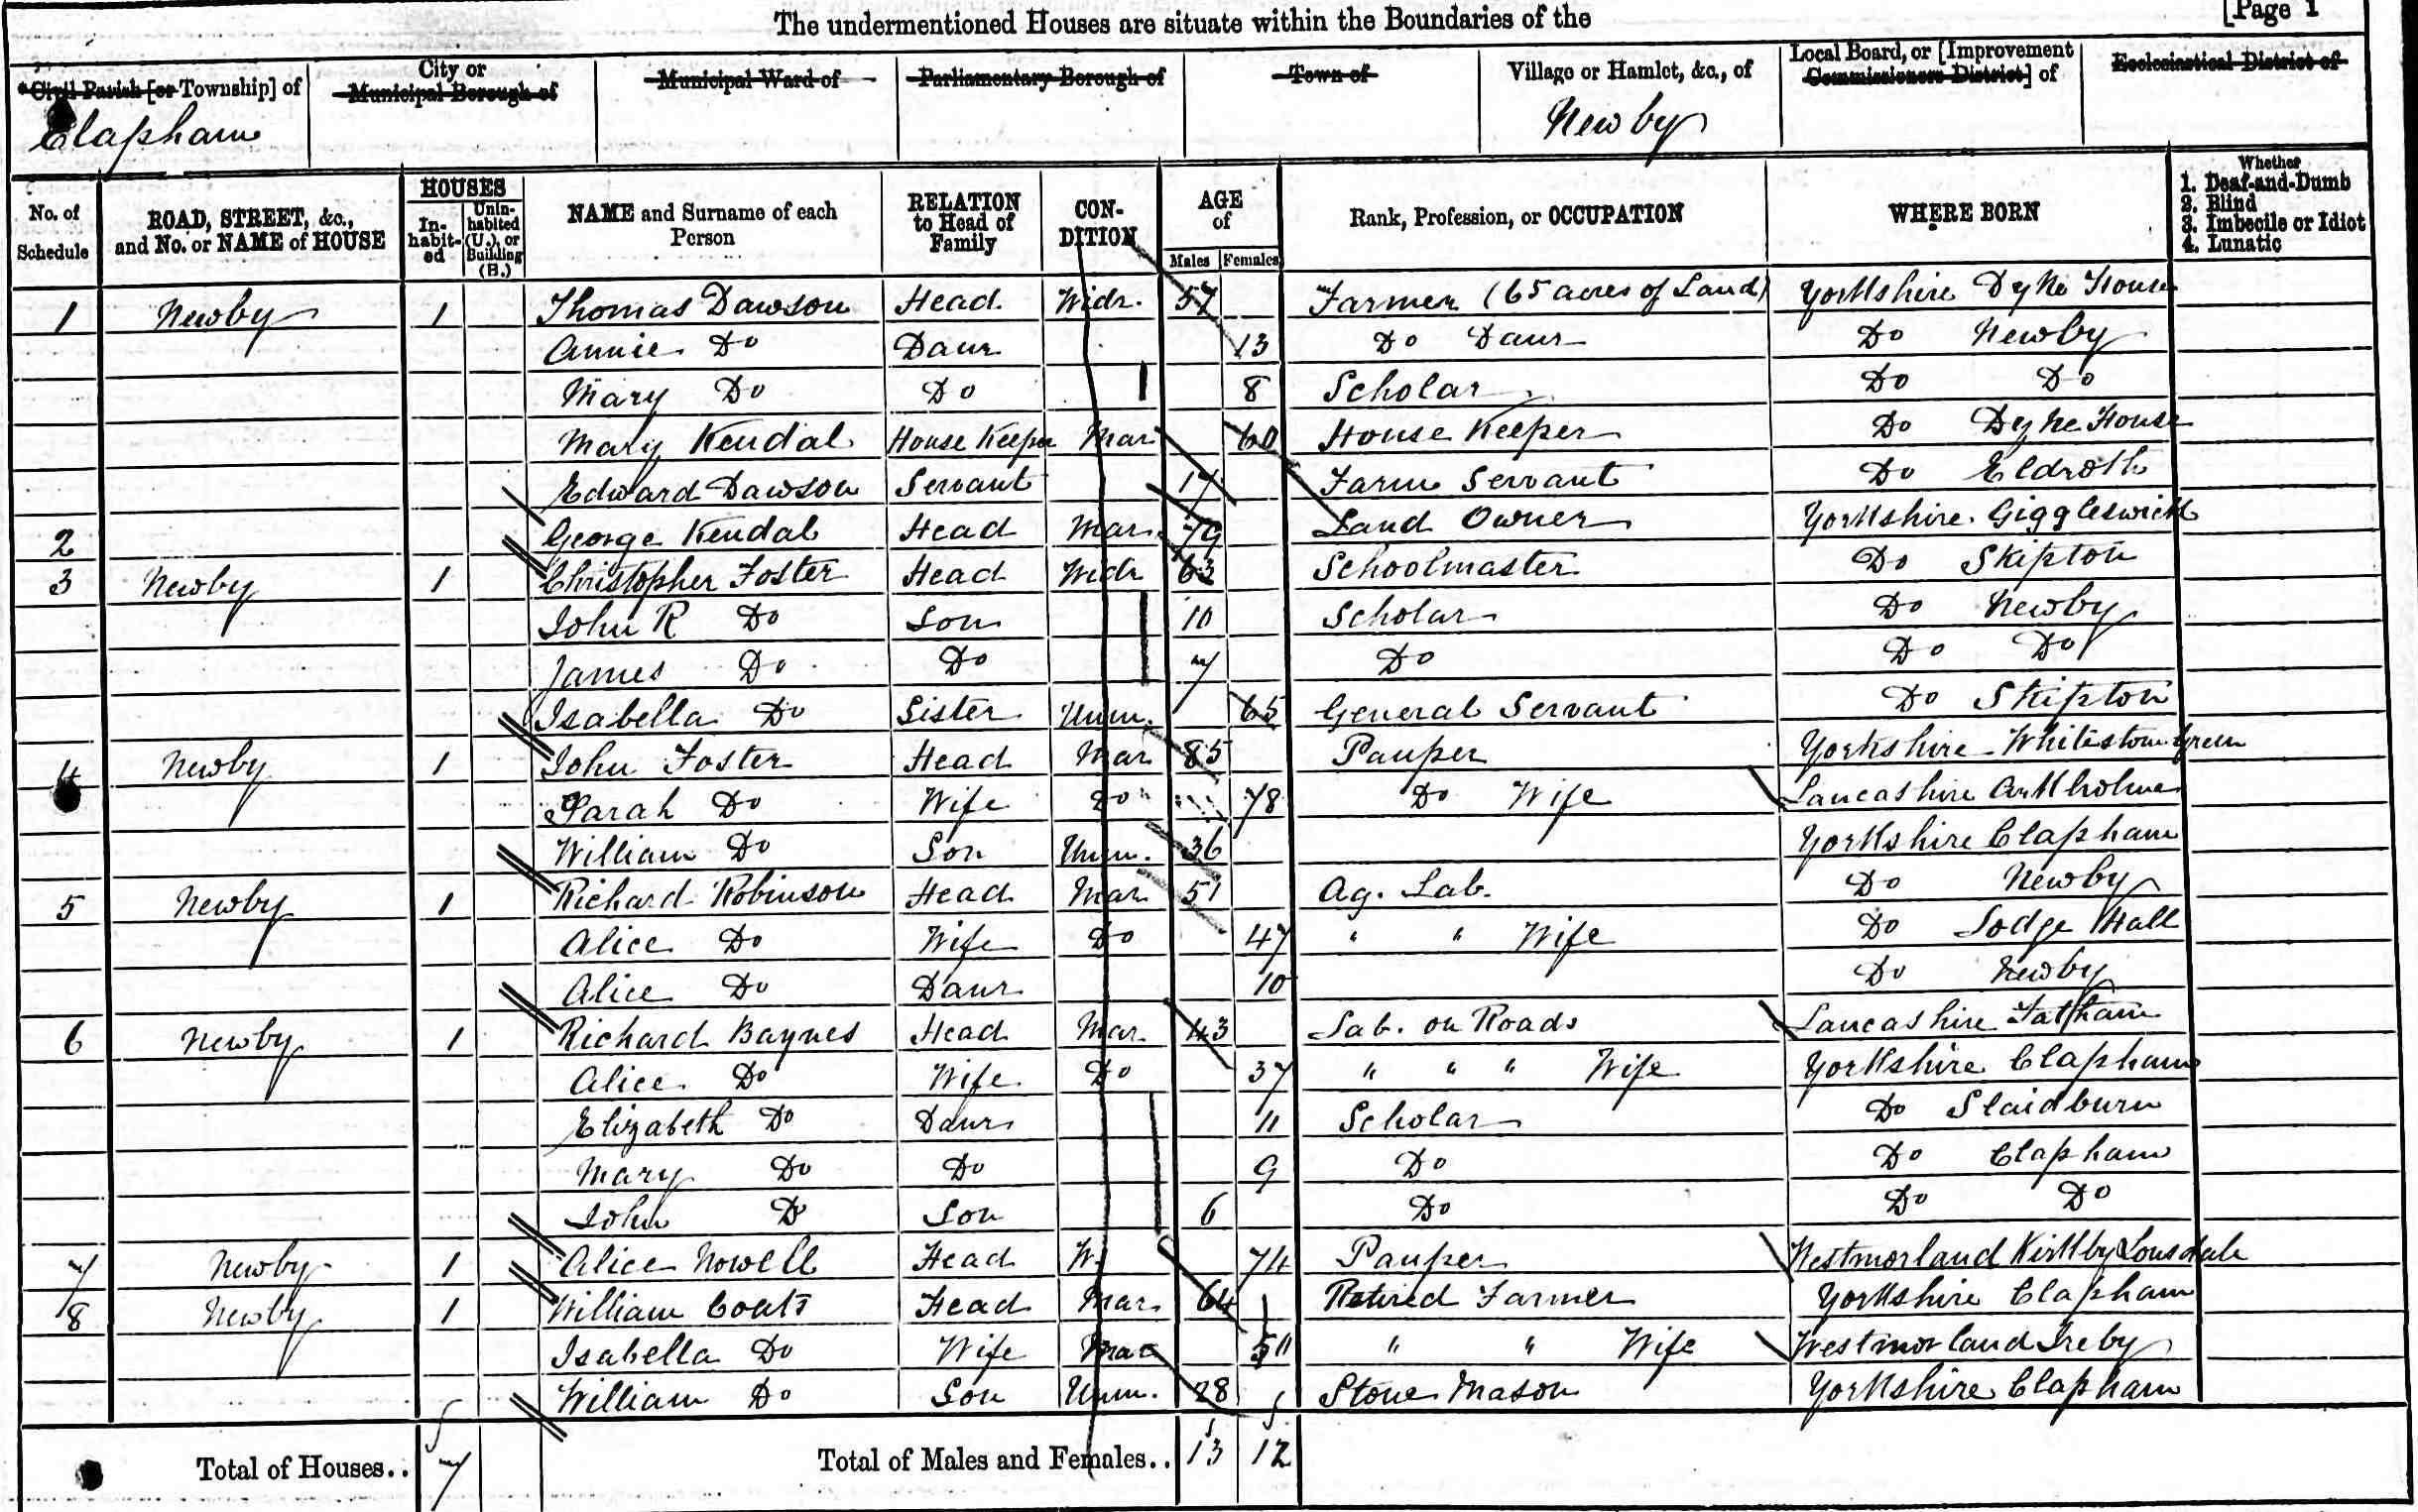 The undermentioned Houses are situate within the Boundaries of the [Page 1
*Civil Parish [or Township] of City or Municipal Borough of Municipal Ward of Parliamentary Borough of Town of Village or Hamlet, &c., of Local Board, or [Improvement Commissioners District] of Ecclesiastical District of
Clapham Newby
No. of Schedule ROAD, STREET, &c., and No. or NAME of HOUSE HOUSES Inhabited Uninhabited (U.), or Building (B.) NAME and Surname of each Person RELATION to Head of Family CONDITION AGE of Males Females Rank, Profession, or OCCUPATION WHERE BORN Whether 1. Deaf-and-Dumb 2. Blind 3. Imbecile or Idiot 4. Lunatic
1 Newby 1 Thomas Dawson Head Widr. 57 Farmer (65 acres of Land) Yorkshire Dyke House
Annie Do Daur 13 Do Daur Do Newby
Mary Do Do 8 Scholar Do Do
Mary Kendal House Keeper Mar 60 House Keeper Do Dyke House
Edward Dawson Servant 17 Farm Servant Do Eldroth
2 George Kendal Head Mar. 79 Land Owner Yorkshire Giggleswick
3 Newby 1 Christopher Foster Head Widr 63 Schoolmaster Do Skipton
John R Do Son 10 Scholar Do Newby
James Do Do 7 Do Do Do
Isabella Do Sister Unm. 65 General Servant Do Skipton
4 Newby 1 John Foster Head Mar 85 Pauper Yorkshire Whitestone Green
Sarah Do Wife Do 78 Do Wife Lancashire Arkholme
William Do Son Unm. 36 Yorkshire Clapham
5 Newby 1 Richard Robinson Head Mar 51 Ag. Lab. Do Newby
Alice Do Wife Do 47 " " Wife Do Lodge Hall
Alice Do Daur 10 Do Newby
6 Newby 1 Richard Baynes Head Mar. 43 Lab. on Roads Lancashire Tatham
Alice Do Wife Do 37 " " " Wife Yorkshire Clapham
Elizabeth Do Daur 11 Scholar Do Slaidburn
Mary Do Do 9 Do Do Clapham
John D Son 6 Do Do Do
7 Newby 1 Alice Nowell Head W. 74 Pauper Westmorland Kirkby Lonsdale
8 Newby 1 William Coats Head Mar. 64 Retired Farmer Yorkshire Clapham
Isabella Do Wife Mar " " Wife Westmorland Ireby
William Do Son Unm. 28 Stone Mason Yorkshire Clapham
Total of Houses.. 7 Total of Males and Females.. 13 12